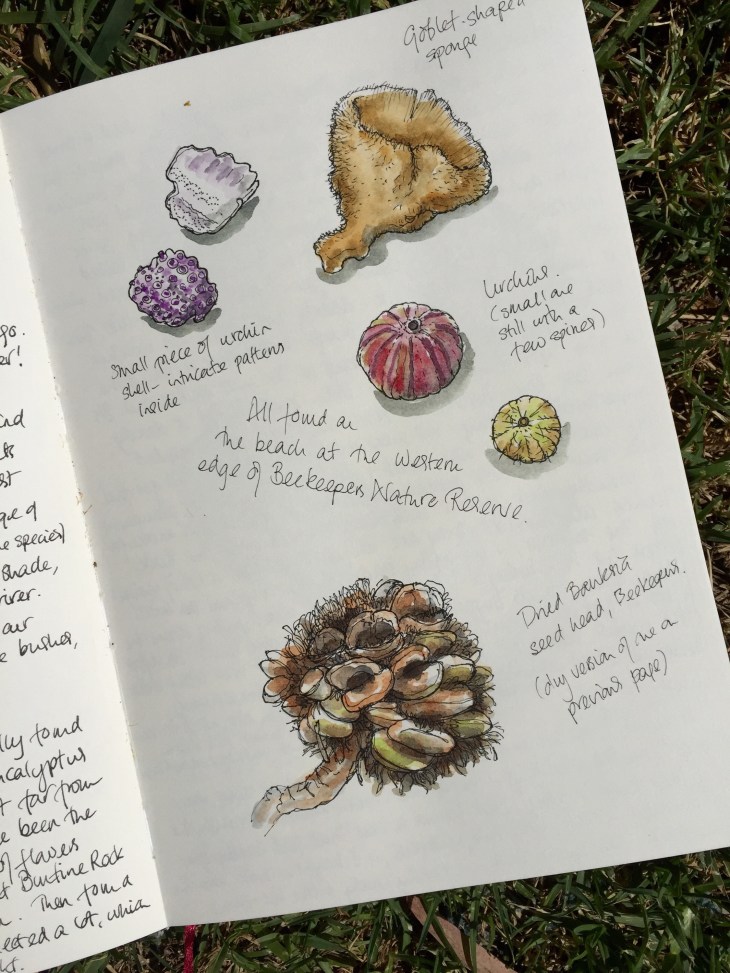 Goblet-shaped
sponge
Urchins.
(small one
still with a
few spines)
Small piece of urchin
shell - intricate patterns
inside
All found on
the beach at the western
edge of Beekeepers Nature Reserve.
Dried Banksia
seed head, Beekeepers.
(dry version of one on
previous page)
er!
and
st
que of
e species)
shade,
river.
our
e bushes,
lly found
ucalyptus
t far from
e been the
of flaves
t Buntine Rock
Then form a
ected a lot, which